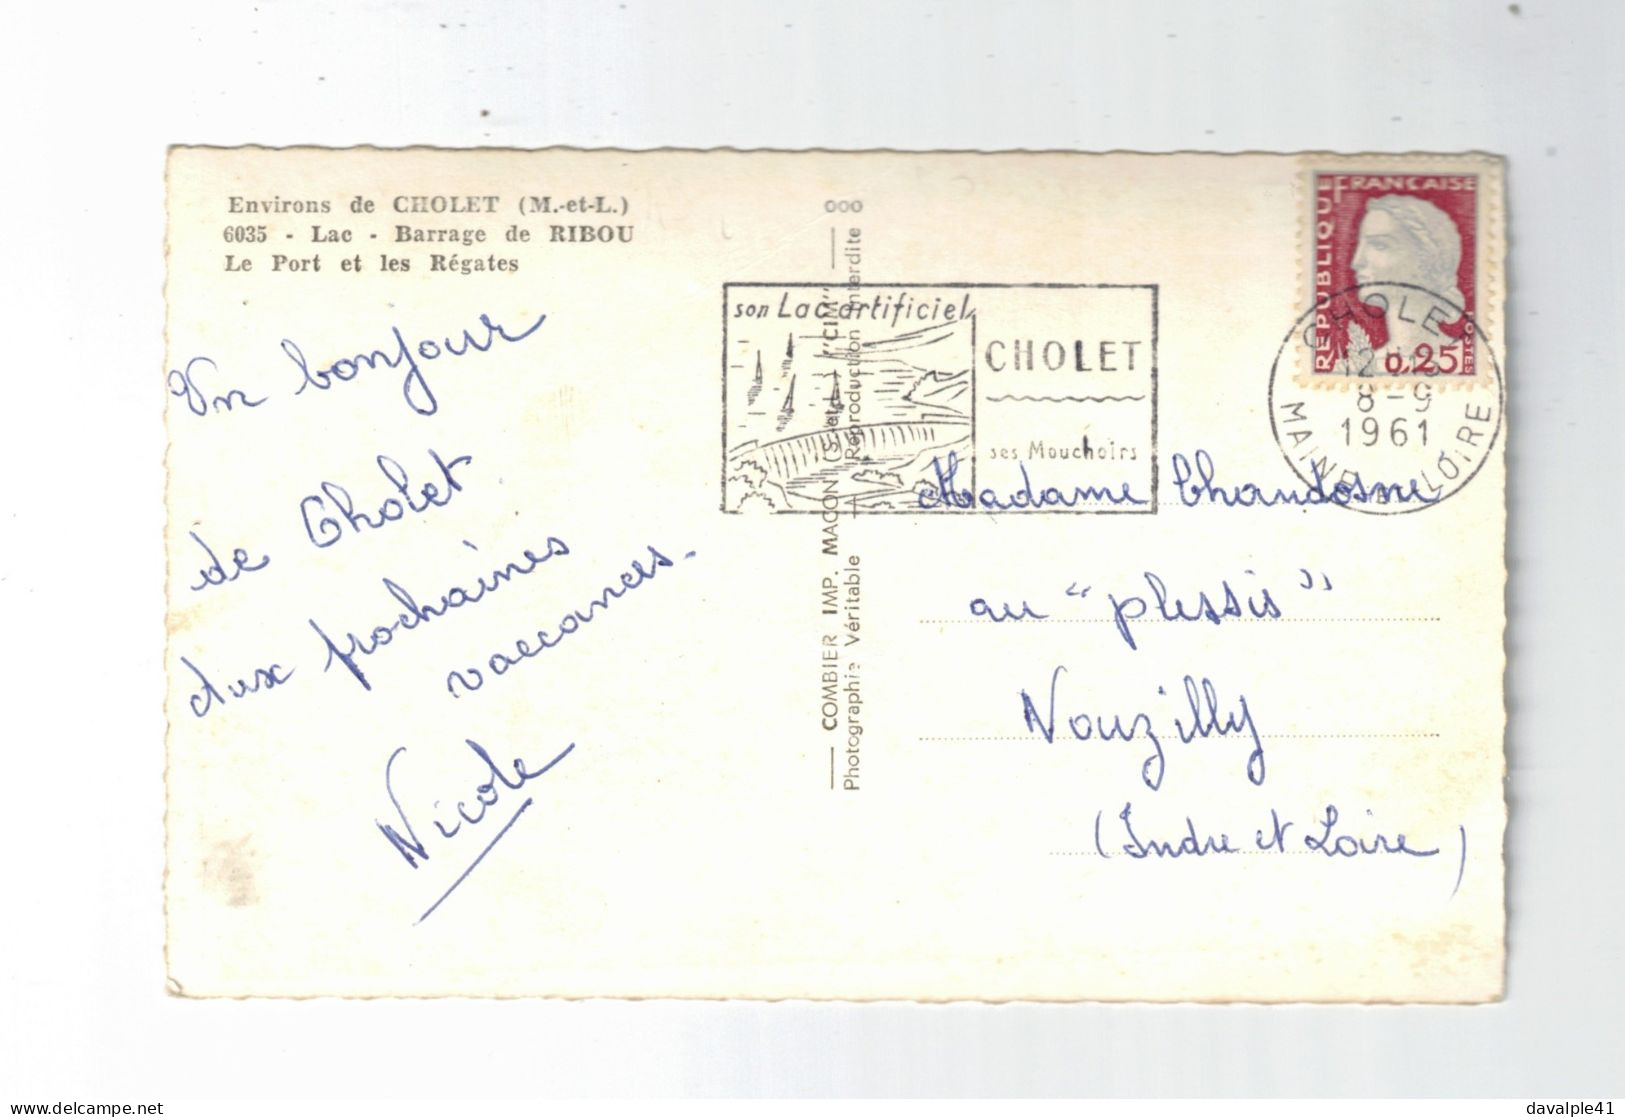 Environs de CHOLET (M.-et-L.)
6035 - Lac - Barrage de RIBOU
Le Port et les Régates
Un bonjour
de Cholet
aux prochaines
vaccances.
Nicole
COMBIER IMP. MACON (S.-et-L.) "CIM"
Photographie Véritable — Reproduction Interdite
son Lac artificiel
CHOLET
ses Mouchoirs
REPUBLIQUE FRANCAISE
POSTES
0,25
CHOLET
8-9
1961
MAINE ET LOIRE
Madame Chandosne
au "plessis"
Nouzilly
(Indre et Loire)
davalple41